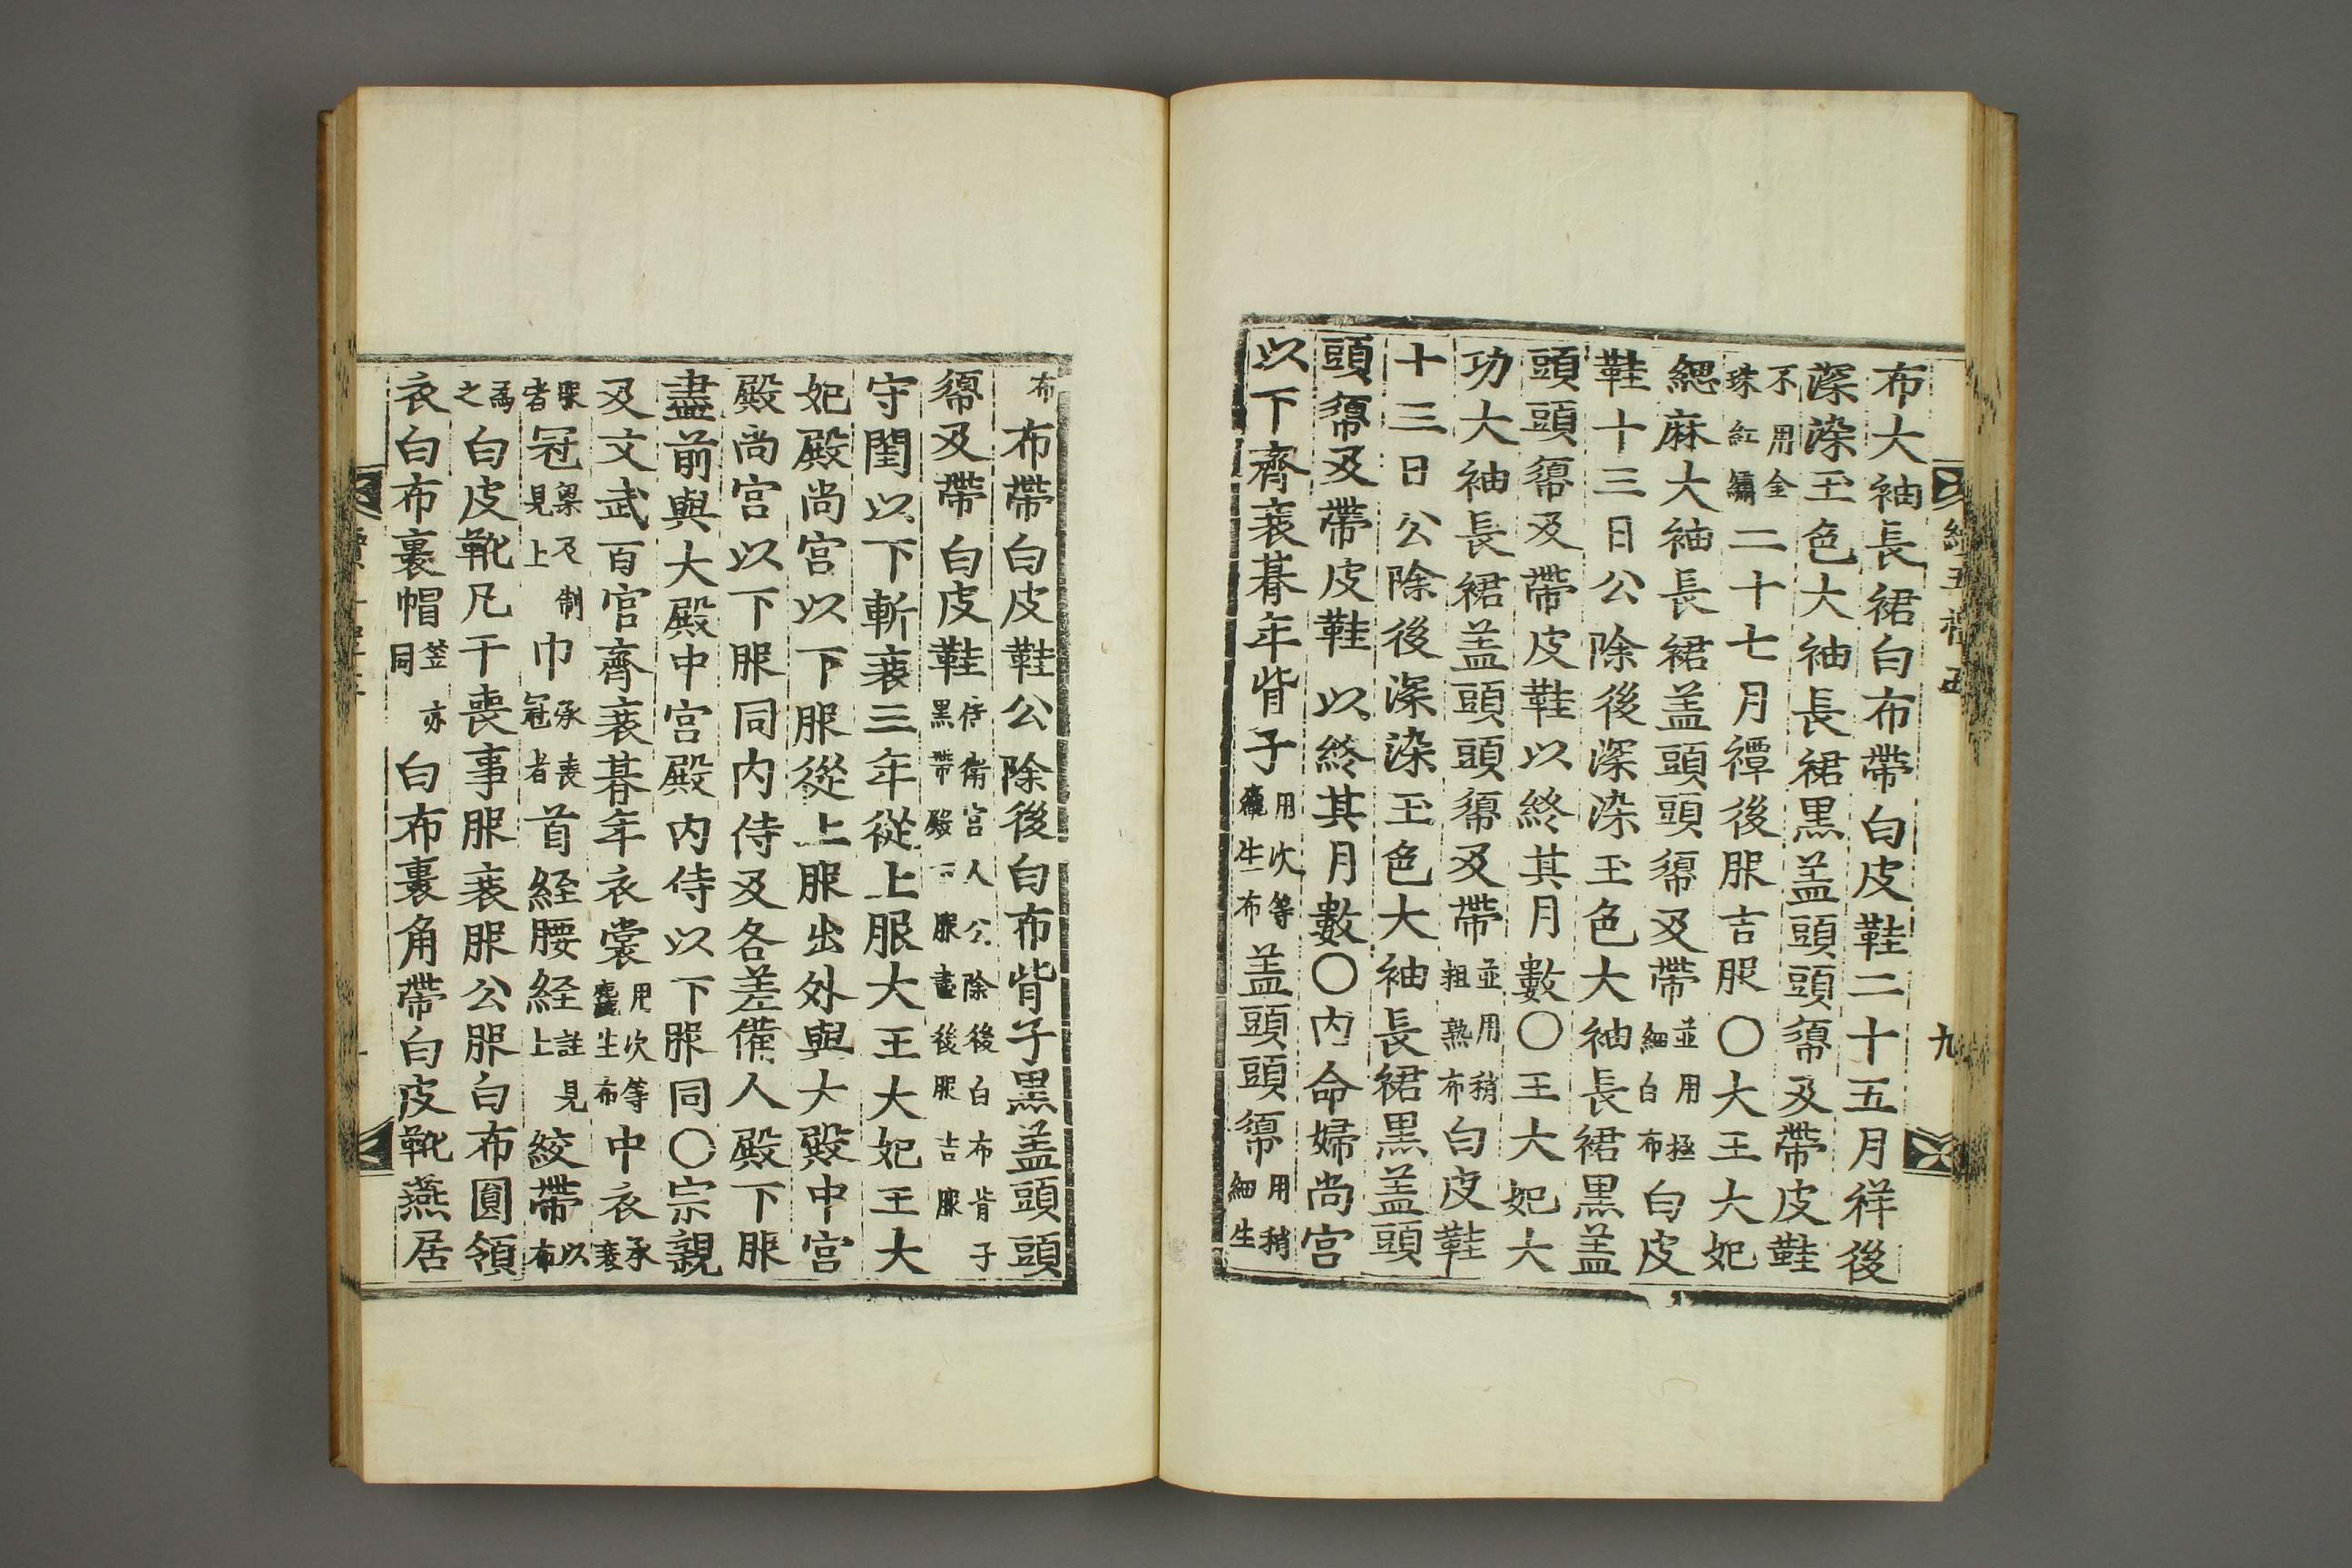 布大袖長裙白布帶白皮鞋二十五月祥後
深染玉色大袖長裙黑盖頭頭𢄼及帶皮鞋
不用金珠紅繡二十七月禫後服吉服〇大王大妃
緦麻大袖長裙盖頭頭𢄼及帶並用極細白布白皮
鞋十三日公除後深染玉色大袖長裙黑盖
頭頭𢄼及帶皮鞋以終其月數〇王大妃大
功大袖長裙盖頭頭𢄼及帶並用稍粗熟布白皮鞋
十三日公除後深染玉色大袖長裙黑盖頭
頭𢄼及帶皮鞋以終其月數〇內命婦尚宮
以下齊衰朞年背子用次等麤生布盖頭頭𢄼用稍細生
布布帶白皮鞋公除後白布背子黑盖頭頭
𢄼及帶白皮鞋侍衛宮人公除後白布背子黑帶殿下服盡後服吉服
守閨以下斬衰三年從上服大王大妃王大
妃殿尚宮以下服從上服出外與大殿中宮
殿尚宮以下服同內侍及各差備人殿下服
盡前與大殿中宮殿內侍以下服同〇宗親
及文武百官齊衰朞年衣裳用次等麤生布中衣承衰
服者冠梁及制見上巾承喪冠者首絰腰絰註見上絞帶以布
爲之白皮靴凡干喪事服衰服公服白布圓領
衣白布裹帽笠亦同白布裹角帶白皮靴燕居
九